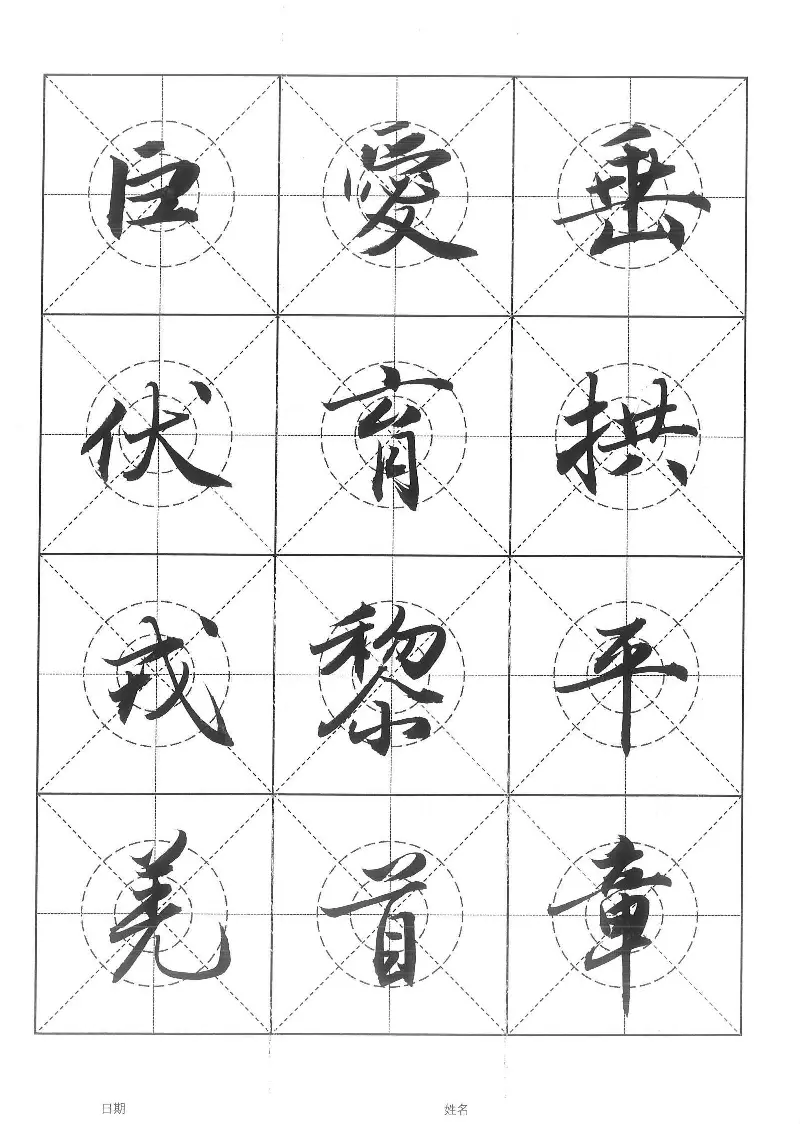 垂拱平章
愛育黎首
臣伏戎羌
日期
姓名